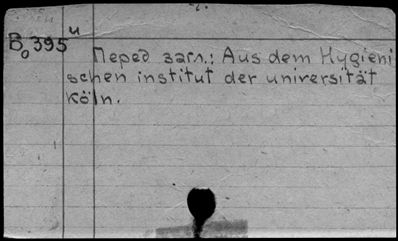 B₀395 и
Перед загл.: Aus dem Hygieni
schen institut der universität
Köln.